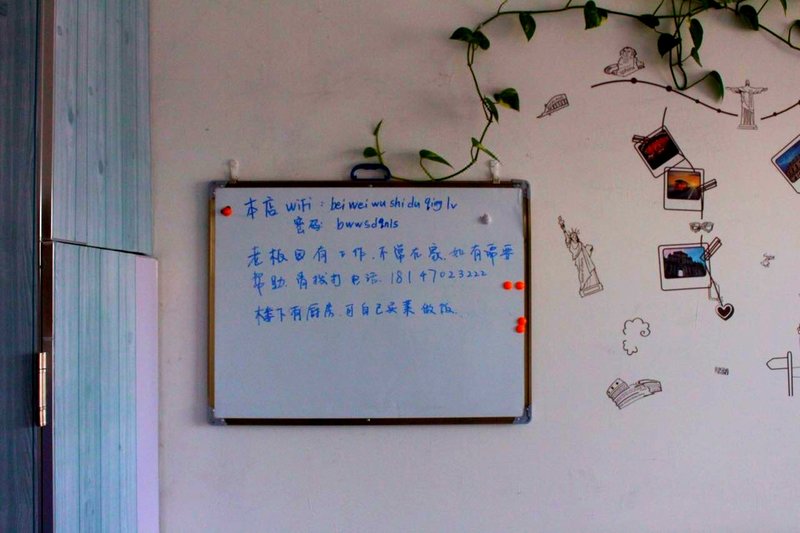 本店 WiFi：beiweiwushiduqinglv
密码：bwwsdqnls
老板因有工作.不常在家.如有需要
帮助.请拨打电话.18147023222
楼下有厨房.可自己买菜做饭.